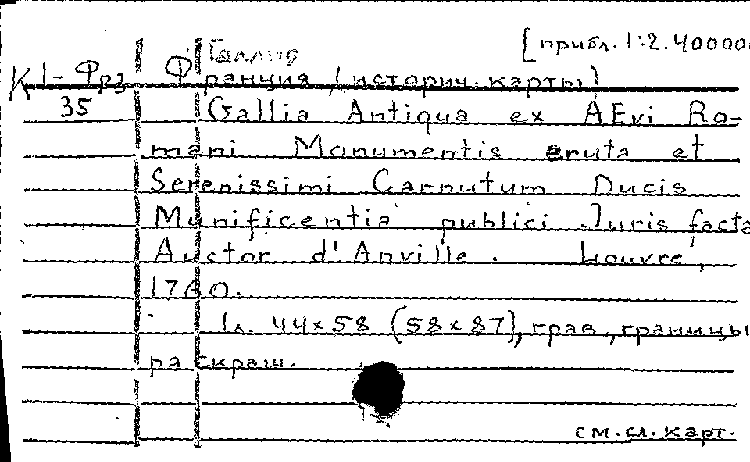 Галлия [прибл. 1:2.400000
К 1-Фр3 Франция (историч. карты)
35 Gallia Antiqua ex AEvi Ro-
mani Monumentis eruta et
Serenissimi Carnutum Ducis
Munificentia publici Juris facta
Auctor d'Anville. Louvre,
1760.
1 л. 44x58 (58x87), грав., границы
раскраш.
см. сл. карт.